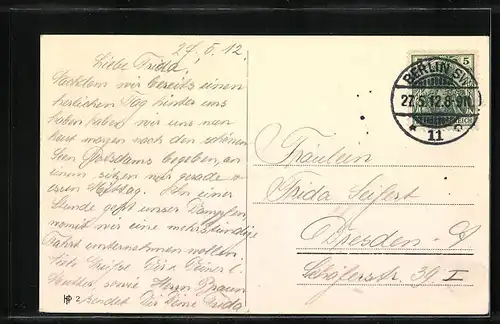 27.5.12.
Liebe Frida!
Nachdem wir bereits einen
herrlichen Tag hinter uns
haben, haben wir uns nun
heut morgen nach den schönen
Potsdams begeben, an
einem sitzen wir gerade u.
essen Mittag. In einer
Stunde geht unser Dampfer,
womit wir eine mehrstündige
Fahrt unternehmen wollen.
Viele Grüße
Mutter, sowie Herrn Braun
sendet Dir Deine Frida.
HP 2
5
BERLIN SW
27.5.12.8-9N.
* 11
Fräulein
Frida Seifert
Dresden - A
Schäferstr 39 I